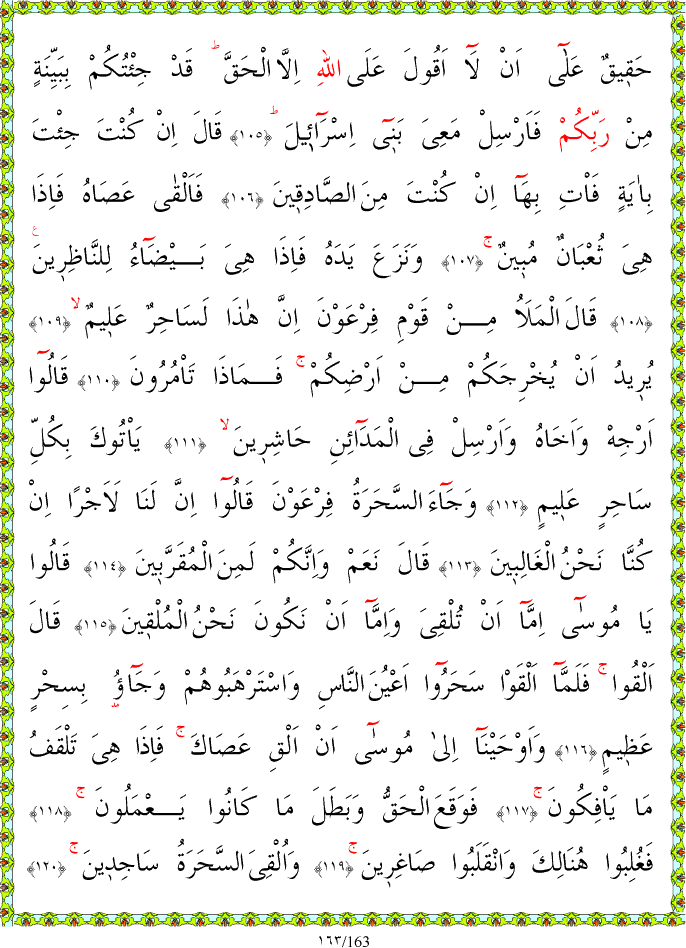 حَقٖيقٌ عَلٰٓى اَنْ لَٓا اَقُولَ عَلَى اللهِ اِلَّا الْحَقَّ ؕ قَدْ جِئْتُكُمْ بِبَيِّنَةٍ
مِنْ رَبِّكُمْ فَاَرْسِلْ مَعِىَ بَنٖٓى اِسْرَٓائٖيلَ ؕ ﴿١٠٥﴾ قَالَ اِنْ كُنْتَ جِئْتَ
بِاٰيَةٍ فَاْتِ بِهَٓا اِنْ كُنْتَ مِنَ الصَّادِقٖينَ ﴿١٠٦﴾ فَاَلْقٰى عَصَاهُ فَاِذَا
هِىَ ثُعْبَانٌ مُبٖينٌ ۚ ﴿١٠٧﴾ وَنَزَعَ يَدَهُ فَاِذَا هِىَ بَـيْضَٓاءُ لِلنَّاظِرٖينَ ع
﴿١٠٨﴾ قَالَ الْمَلَاُ مِـنْ قَوْمِ فِرْعَوْنَ اِنَّ هٰذَا لَسَاحِرٌ عَلٖيمٌ ۙ ﴿١٠٩﴾
يُرٖيدُ اَنْ يُخْرِجَكُمْ مِـنْ اَرْضِكُمْ ۚ فَـمَاذَا تَاْمُرُونَ ﴿١١٠﴾ قَالُٓوا
اَرْجِهْ وَاَخَاهُ وَاَرْسِلْ فِى الْمَدَٓائِنِ حَاشِرٖينَ ۙ ﴿١١١﴾ يَاْتُوكَ بِكُلِّ
سَاحِرٍ عَلٖيمٍ ﴿١١٢﴾ وَجَٓاءَ السَّحَرَةُ فِرْعَوْنَ قَالُٓوا اِنَّ لَنَا لَاَجْرًا اِنْ
كُنَّا نَحْنُ الْغَالِبٖينَ ﴿١١٣﴾ قَالَ نَعَمْ وَاِنَّكُمْ لَمِنَ الْمُقَرَّبٖينَ ﴿١١٤﴾ قَالُوا
يَا مُوسٰٓى اِمَّٓا اَنْ تُلْقِىَ وَاِمَّٓا اَنْ نَكُونَ نَحْنُ الْمُلْقٖينَ ﴿١١٥﴾ قَالَ
اَلْقُوا ۚ فَلَمَّٓا اَلْقَوْا سَحَرُٓوا اَعْيُنَ النَّاسِ وَاسْتَرْهَبُوهُمْ وَجَٓاؤُ بِسِحْرٍ
عَظٖيمٍ ﴿١١٦﴾ وَاَوْحَيْنَٓا اِلىٰ مُوسٰٓى اَنْ اَلْقِ عَصَاكَ ۚ فَاِذَا هِىَ تَلْقَفُ
مَا يَاْفِكُونَ ۚ ﴿١١٧﴾ فَوَقَعَ الْحَقُّ وَبَطَلَ مَا كَانُوا يَـعْمَلُونَ ۚ ﴿١١٨﴾
فَغُلِبُوا هُنَالِكَ وَانْقَلَبُوا صَاغِرٖينَ ۚ ﴿١١٩﴾ وَاُلْقِىَ السَّحَرَةُ سَاجِدٖينَ ۚ ﴿١٢٠﴾
١٦٣/163